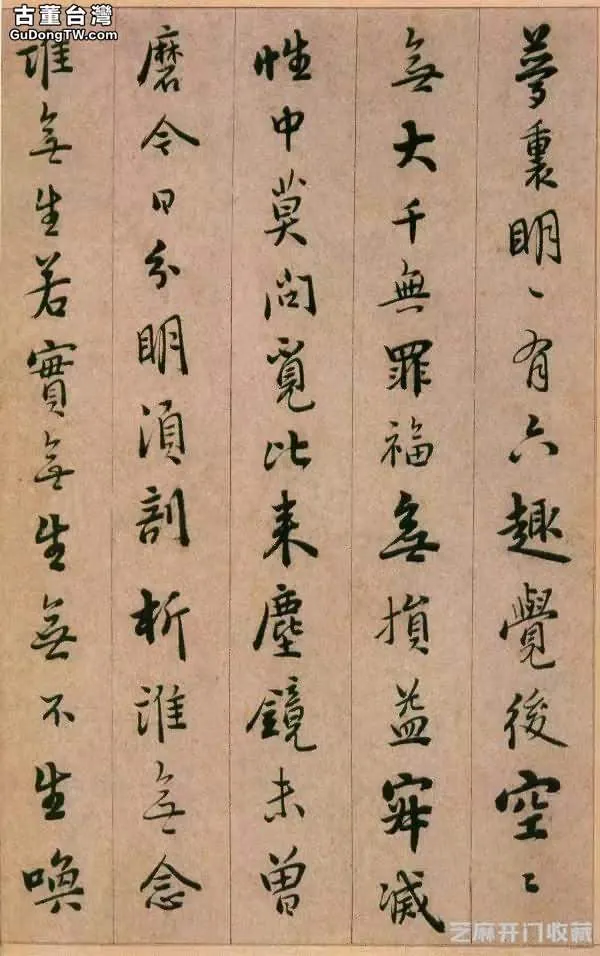 古董台灣
GuDongTW.com
夢裏明〻有六趣覺後空〻
無大千無罪福無損益寂滅
性中莫問覓比来塵鏡未曾
磨今日分明湏剖析誰無念
誰無生若實無生無不生喚
芝麻开门收藏